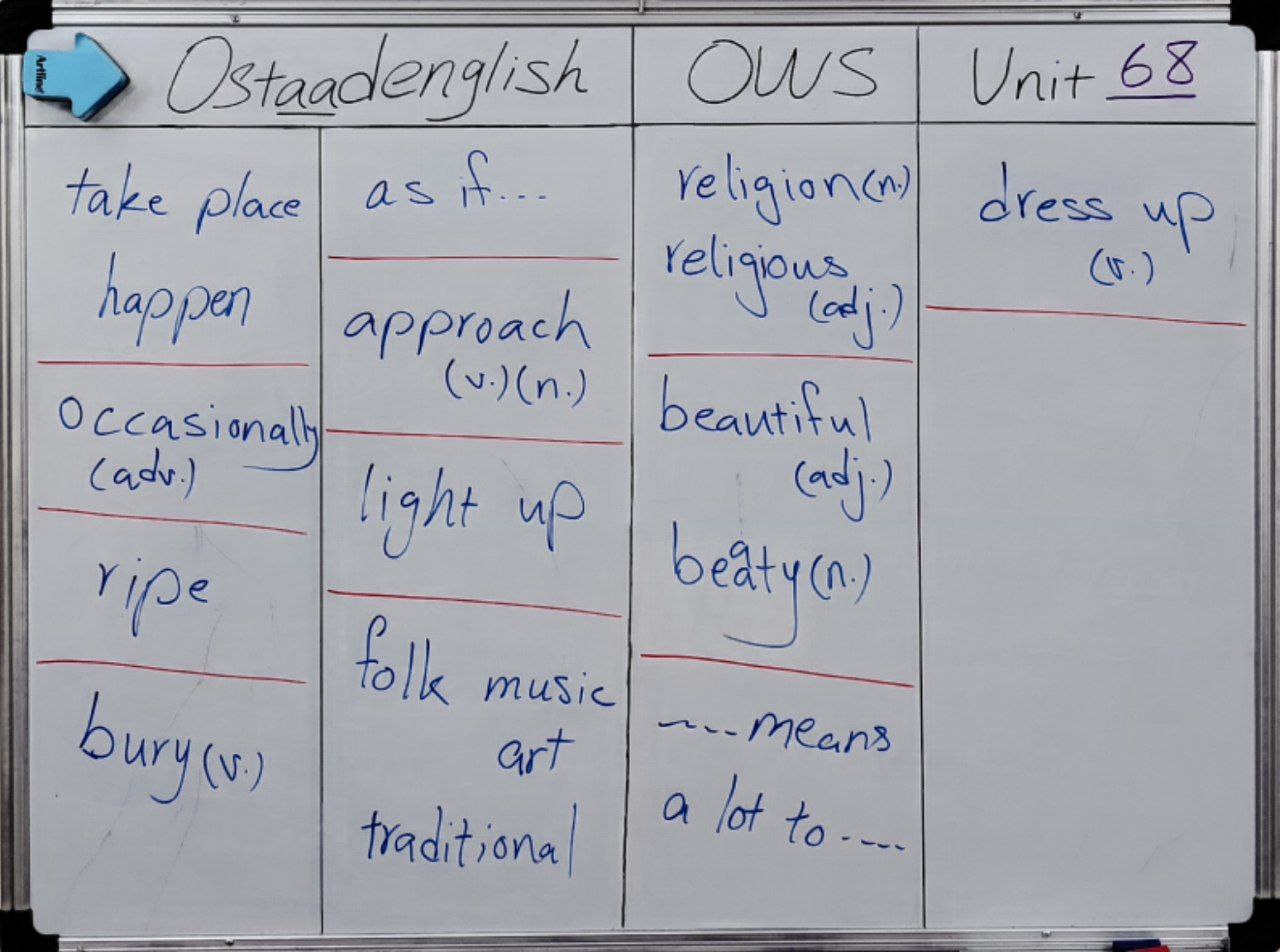 Artline
Ostaadenglish
OWS
Unit 68
take place
happen
occasionally
(adv.)
ripe
bury (v.)
as if...
approach
(v.) (n.)
light up
folk music
art
traditional
religion (n.)
religious
(adj.)
beautiful
(adj.)
beaty (n.)
----means
a lot to ----
dress up
(v.)